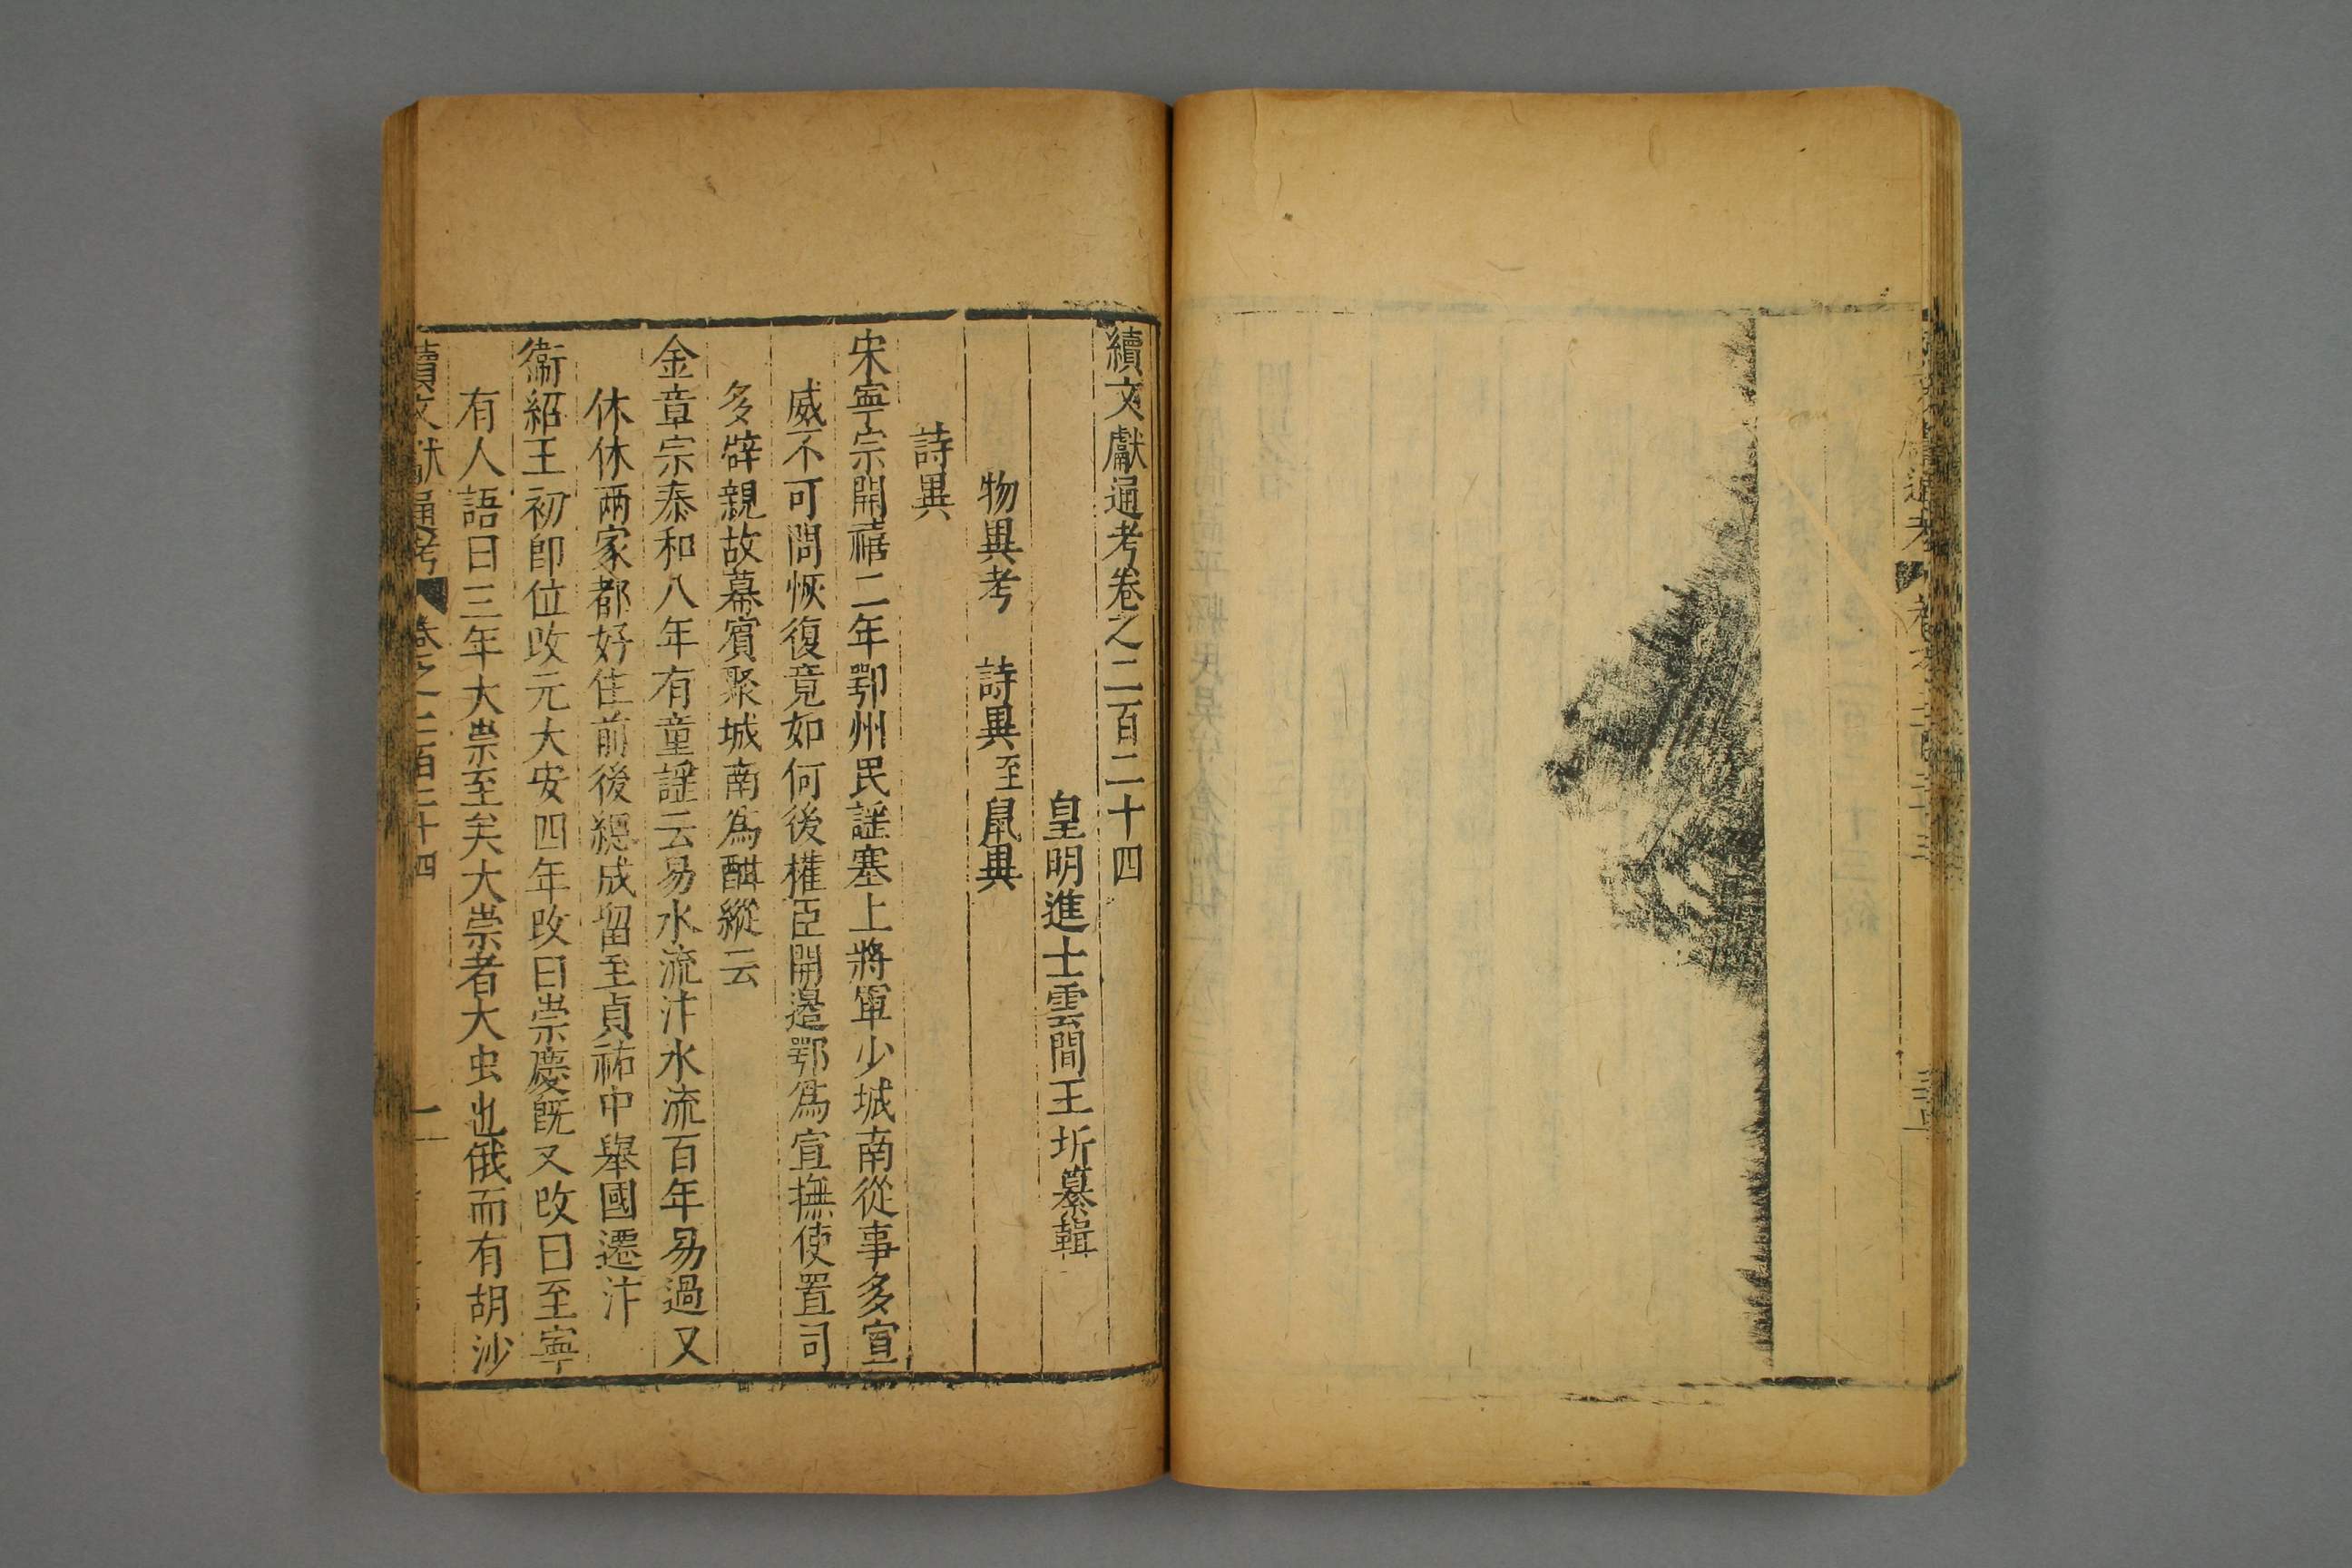 續文獻通考卷之二百二十四
皇明進士雲間王圻纂輯
物異考　詩異至鼠異
詩異
宋寧宗開禧二年鄂州民謡塞上將軍少城南從事多宣
威不可問恢復竟如何後權臣開邉鄂爲宣撫使置司
多辟親故幕賓聚城南爲酣縱云
金章宗泰和八年有童謡云易水流汴水流百年易過又
休休兩家都好住前後緫成留至貞祐中舉國遷汴
衞紹王初卽位改元大安四年改曰崇慶旣又改曰至寧
有人語曰三年大崇至矣大崇者大虫也俄而有胡沙
續文獻通考 卷之二百二十四 一